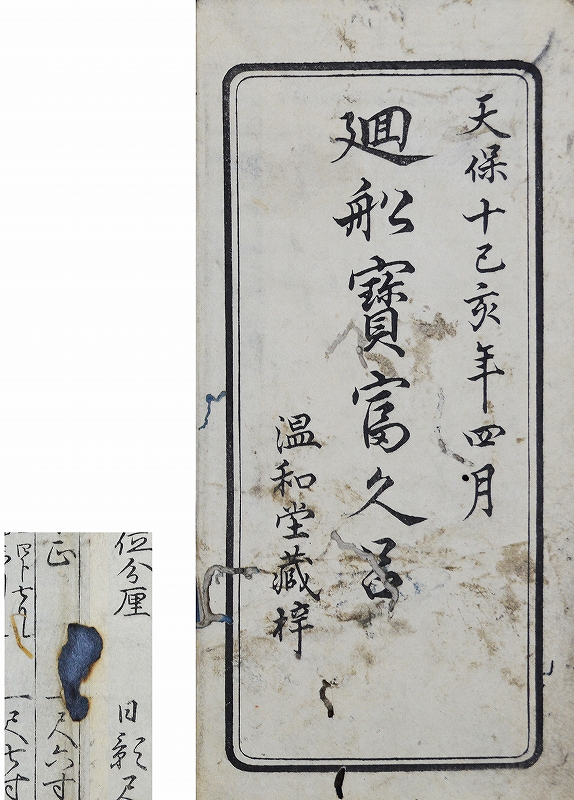 天保十己亥年四月
廻船寶富久呂
温和堂藏梓
位分厘
日影尺
正
一尺六寸
一尺七寸